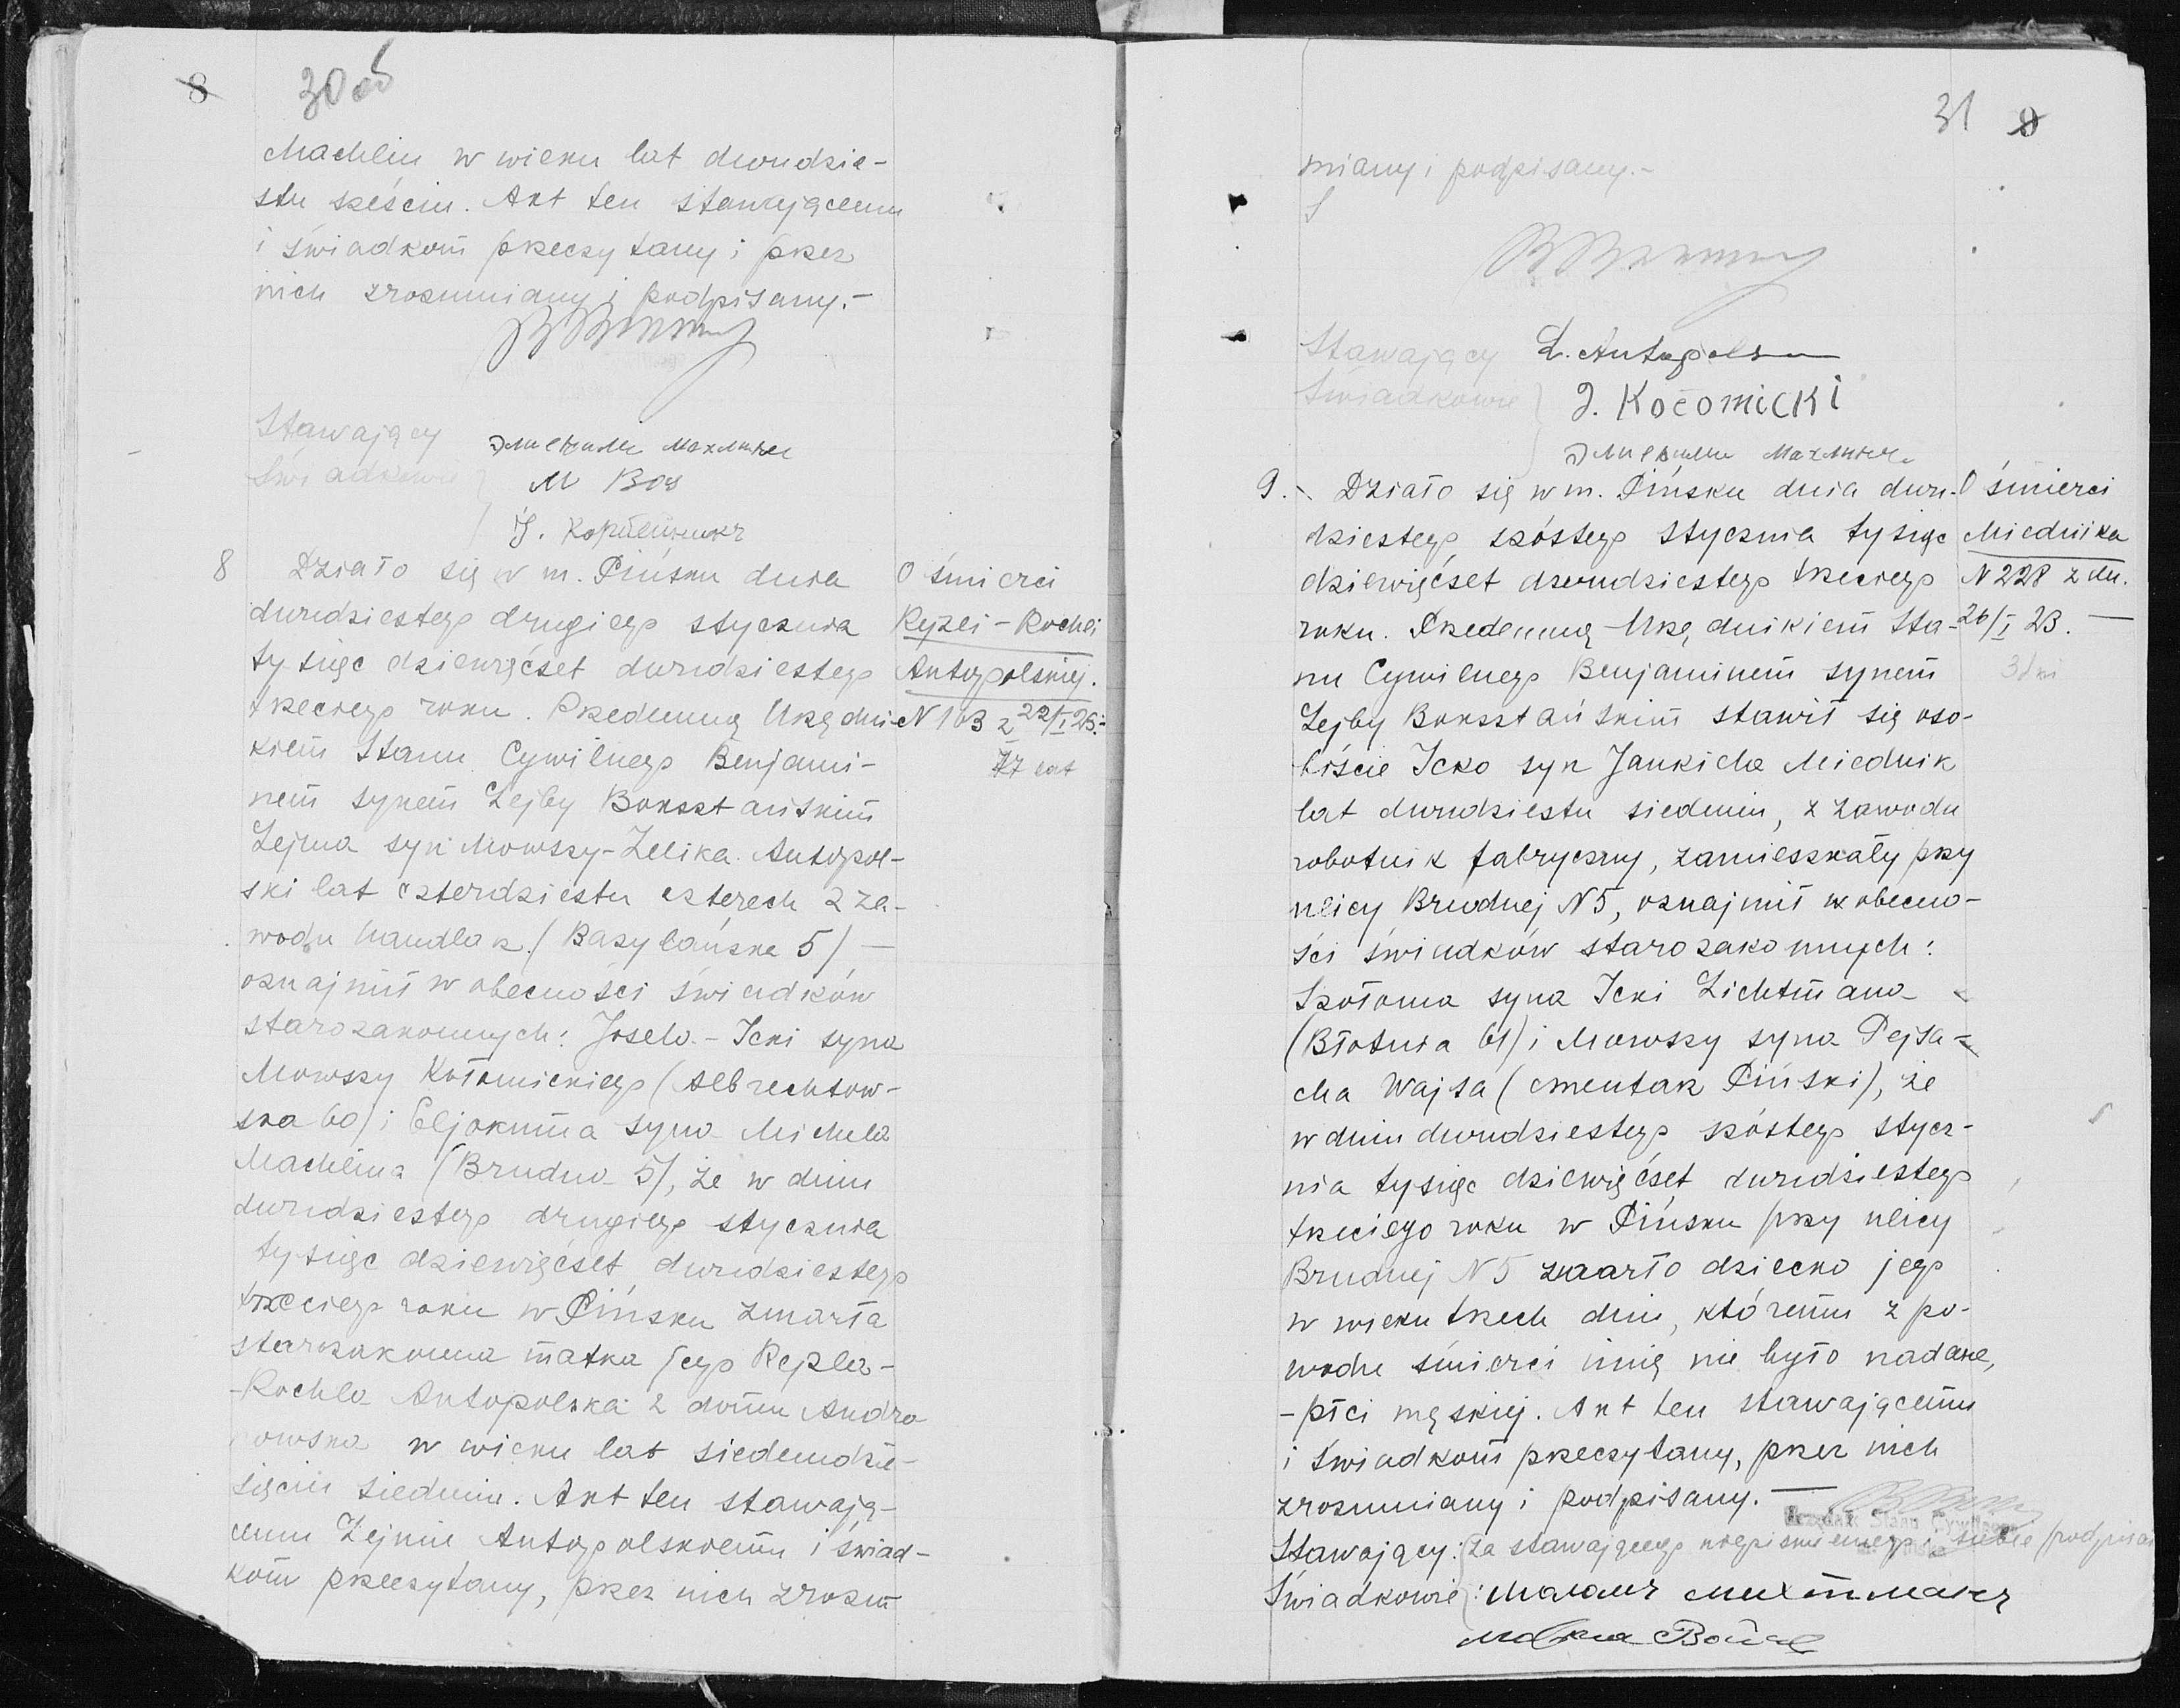 8 30 об
Machlin w wieku lat dwudzie-
stu sześciu. Akt ten stawającemu
i świadkom przeczytany i przez
nich zrozumiany i podpisany.-
Stawający Элиокимъ Махлинъ
Świadkowie
8 Działo się w m. Pińsku dnia
dwudziestego drugiego stycznia
tysiąc dziewięćset dwudziestego
trzeciego roku. Przedemną Urzędni-
kiem Stanu Cywilnego Benjami-
nem synem Lejby Boksztańskim
Lejma syn Mowszy-Zelika Antopol-
ski lat czterdziestu czterech z za-
wodu handlarz (Bazyljańska 5) -
oznajmił w obecności świadków
starozakonnych: Josela-Icki syna
Mowszy Kołomickiego (Albrechtow-
ska 60) i Eljokuma syna Michela
Machlina (Brudna 5), że w dniu
dwudziestego drugiego stycznia
tysiąc dziewięćset dwudziestego
trzeciego roku w Pińsku zmarła
starozakonna matka jego
-Rochla Antopolska z domu Andro
nowska w wieku lat siedemdzie-
sięciu siedmiu. Akt ten stawają-
cemu Lejmie Antopolskiemu i świad-
kom przeczytany, przez nich zrozu
O śmierci
Ryzli-Rochli
Antopolskiej.
N 163 z 22/I 23.
77 lat
31 9
miany i podpisany.-
Stawający L. Antopolski
Świadkowie J. Kołomicki
Элиокимъ Махлинъ
9. Działo się w m. Pińsku dnia dwu-
dziestego szóstego stycznia tysiąc
dziewięćset dwudziestego trzeciego
roku. Przedemną Urzędnikiem Sta-
nu Cywilnego Benjaminem synem
Lejby Boksztańskim stawił się oso-
biście Icko syn Jankiela Miednik
lat dwudziestu siedmiu, z zawodu
robotnik fabryczny, zamieszkały przy
ulicy Brudnej N 5, oznajmił w obecno-
ści świadków starozakonnych:
Szołoma syna Icki Lichtmana
(Błotnia 61) i Mowszy syna Pejsa-
cha Wajsa (cmentarz Piński), że
w dniu dwudziestego szóstego stycz-
nia tysiąc dziewięćset dwudziestego
trzeciego roku w Pińsku przy ulicy
Brudnej N 5 zmarło dziecko jego
w wieku trzech dni, któremu z po-
wodu śmierci imię nie było nadane,
-płci męskiej. Akt ten stawającemu
i świadkom przeczytany, przez nich
zrozumiany i podpisany. -
Urzędnik Stanu Cywilnego
Stawający: za stawającego niepiśmiennego i siebie podpisał
Świadkowie: Шалом Лихтмахер
O śmierci
Miednika
N 228 z dn.
26/I 23. -
3 dni